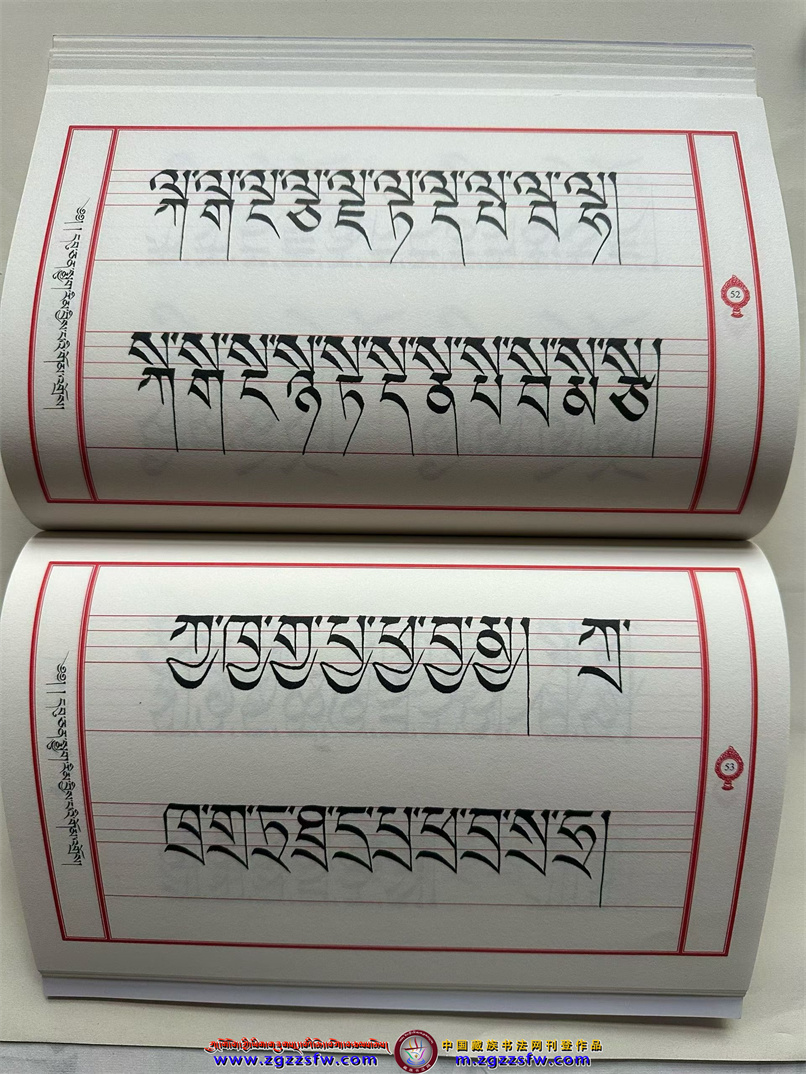 ལྐ་ལྒ་ལྔ་ལྕ་ལྗ་ལྟ་ལྡ་ལྤ་ལྦ་ལྷ།
52
སྐ་སྒ་སྔ་སྙ་སྟ་སྡ་སྣ་སྤ་སྦ་སྨ་སྩ།
ཀྱ་ཁྱ་གྱ་པྱ་ཕྱ་བྱ་མྱ། ཀྲ་
53
ཁྲ་གྲ་ཏྲ་ཐྲ་དྲ་པྲ་ཕྲ་བྲ་སྲ་ཧྲ།
中国藏族书法网刊登作品
www.zgzzsfw.com m.zgzzsfw.com